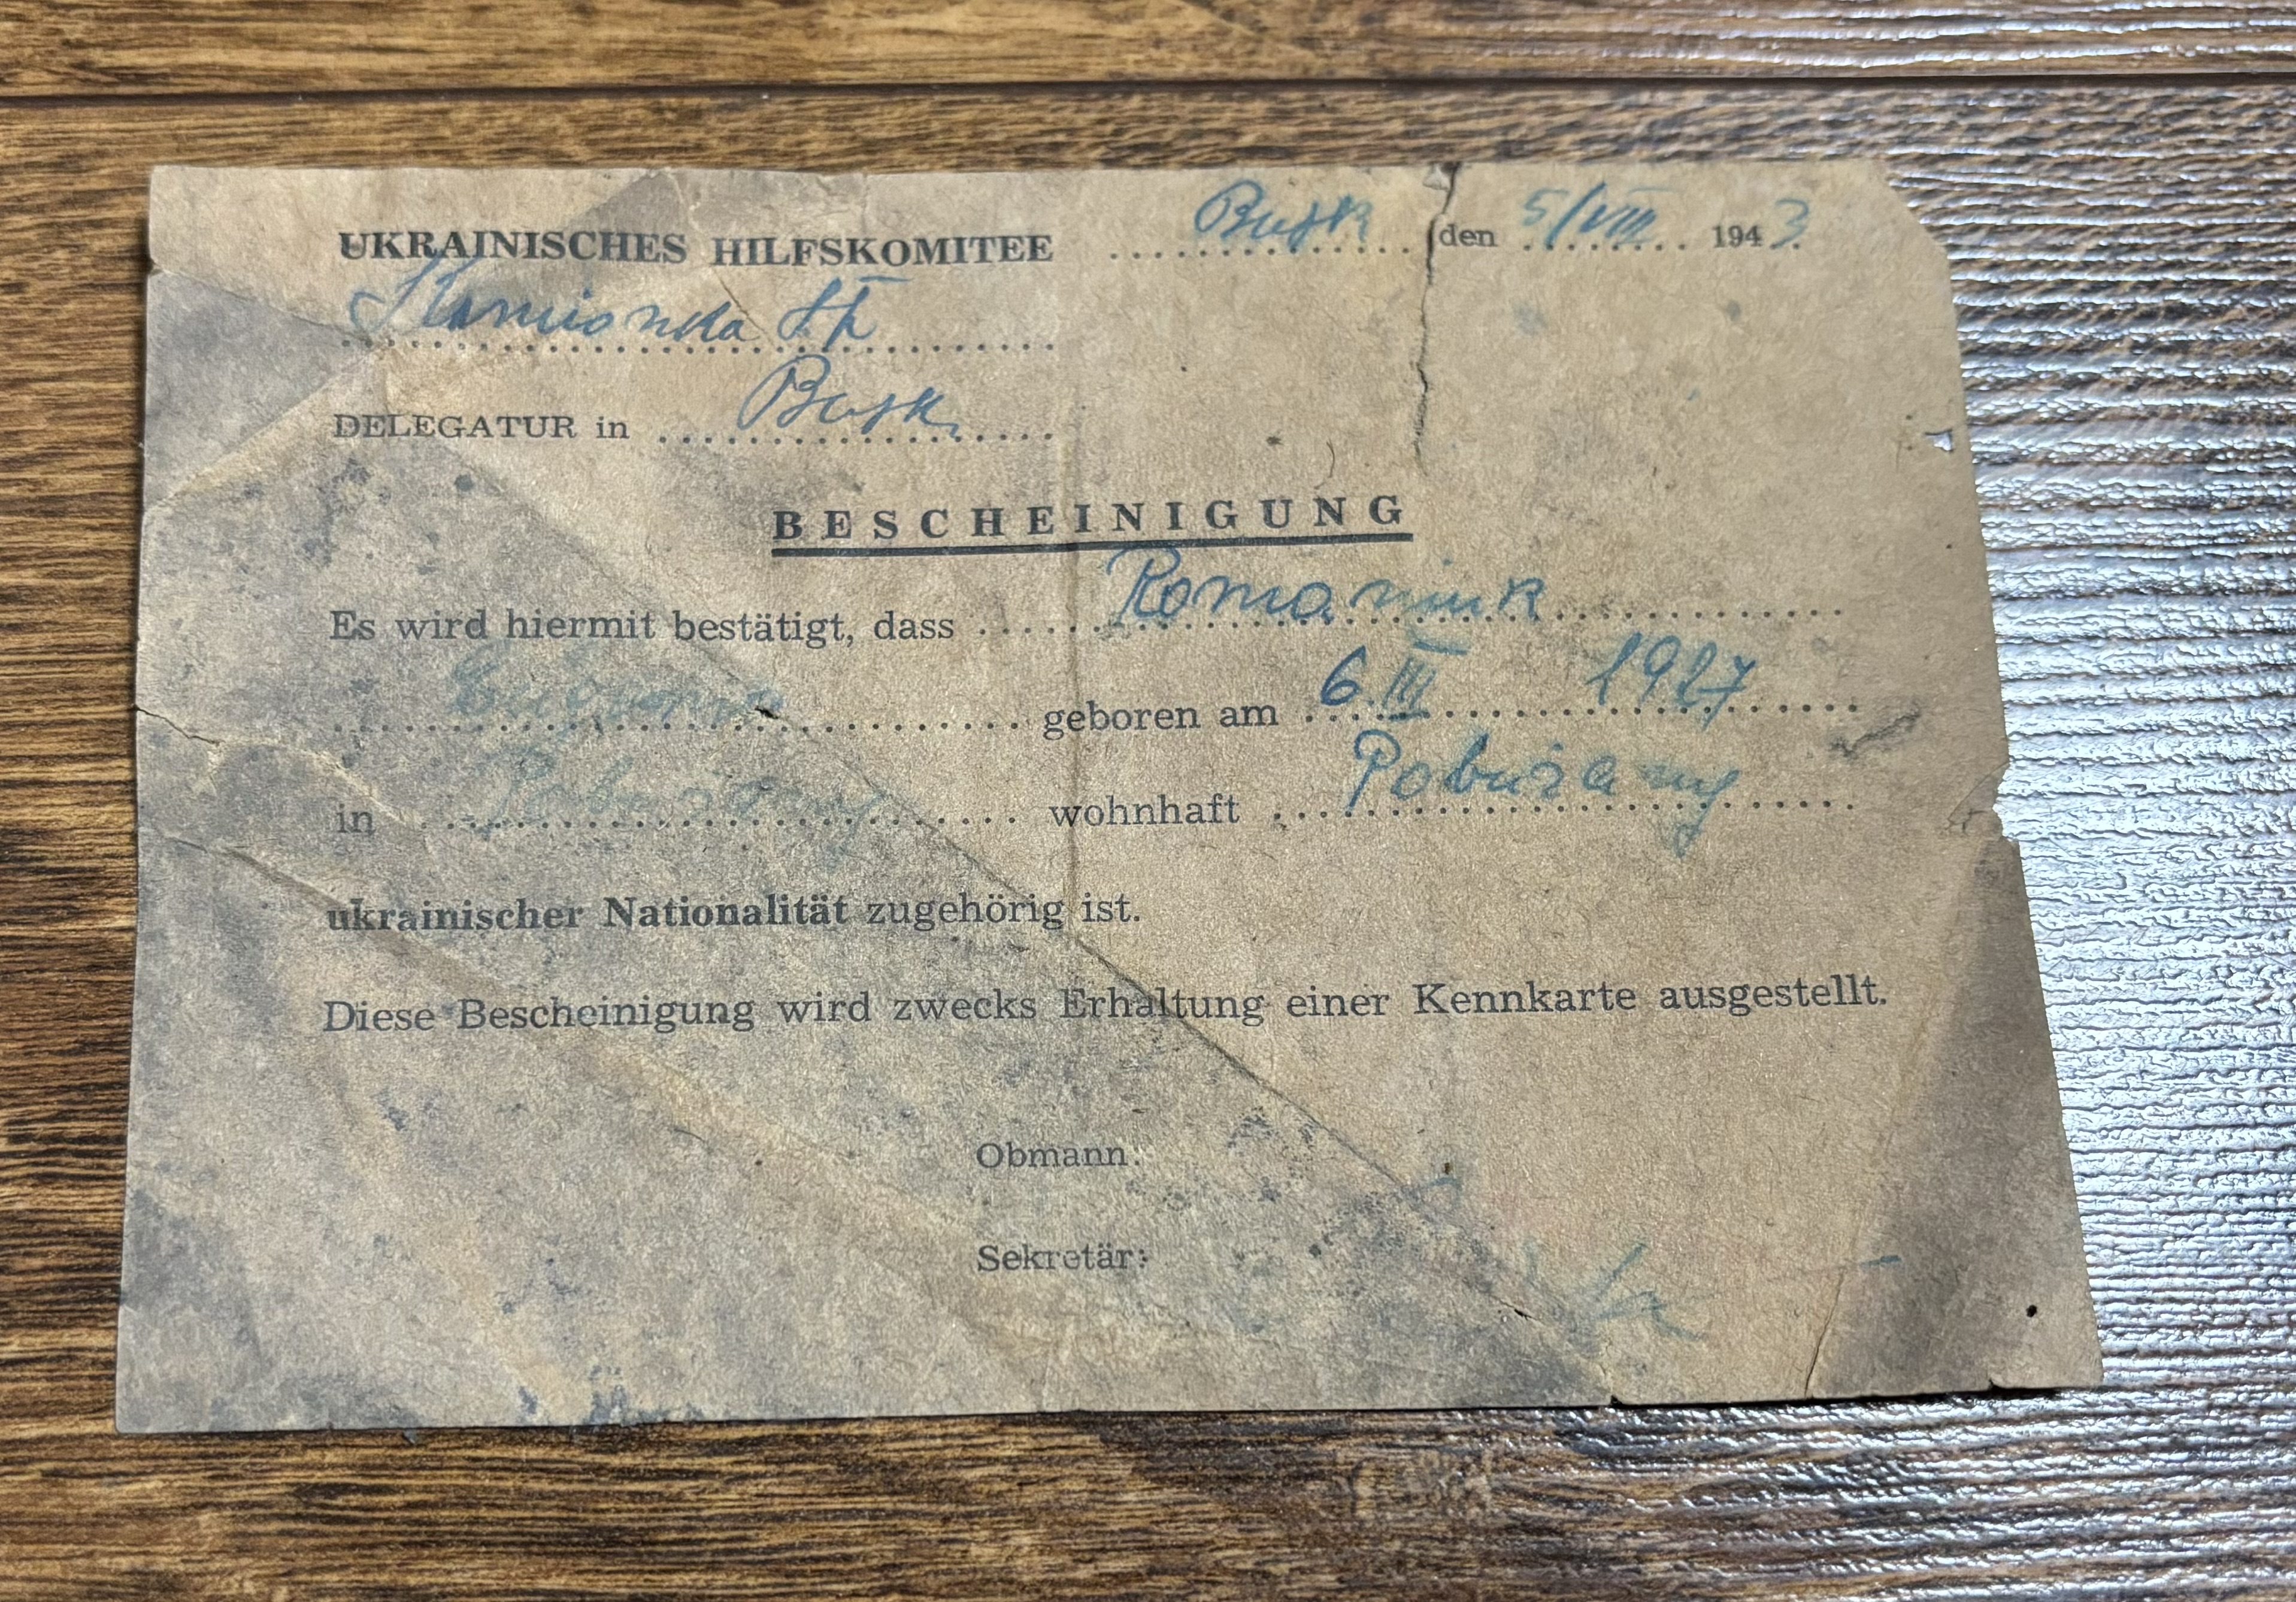 UKRAINISCHES HILFSKOMITEE Busk den 5/VIII 1943.
Kamionka St
DELEGATUR in Busk
BESCHEINIGUNG
Es wird hiermit bestätigt, dass Romaniuk
geboren am 6.III 1927
in Pobużany wohnhaft Pobużany
ukrainischer Nationalität zugehörig ist.
Diese Bescheinigung wird zwecks Erhaltung einer Kennkarte ausgestellt.
Obmann:
Sekretär: